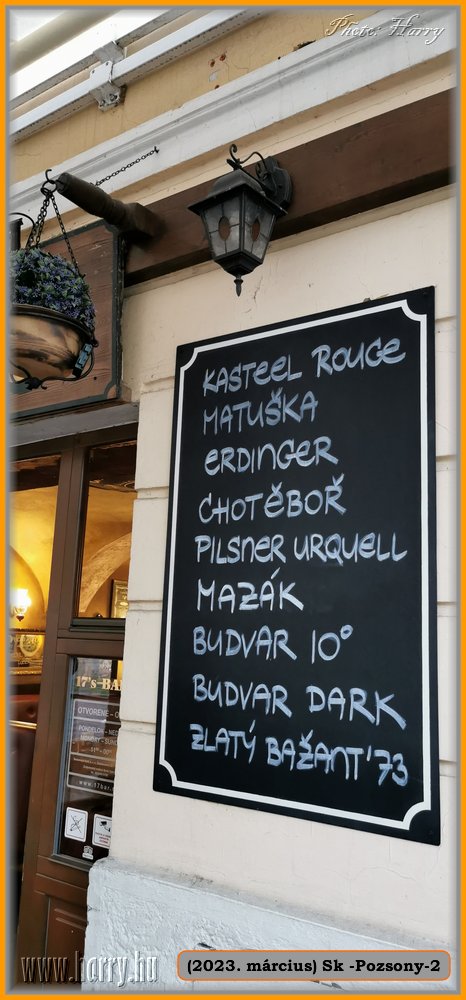 Photo: Harry
KASTEEL ROUGE
MATUŠKA
ERDINGER
CHOTĚBOŘ
PILSNER URQUELL
MAZÁK
BUDVAR 10°
BUDVAR DARK
ZLATÝ BAŽANT '73
17's BAR
OTVORENÉ - O
PONDELOK - NE
MONDAY - SUN
www.17bar.
www.horry.hu
(2023. március) Sk -Pozsony-2